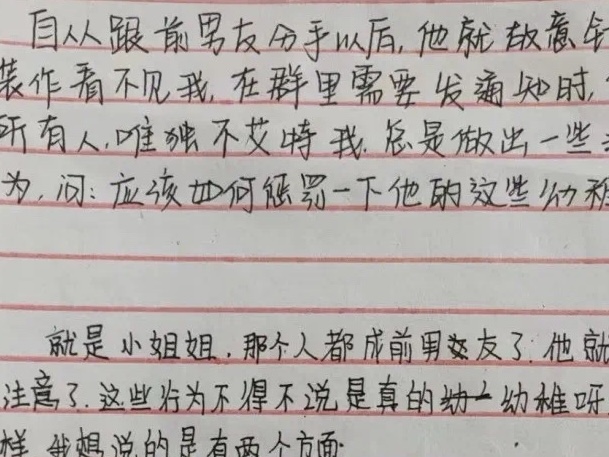 自从跟前男友分手以后,他就故意针
装作看不见我,在群里需要发通知时,
所有人,唯独不艾特我.总是做出一些
为,问:应该如何惩罚一下他的这些幼稚
就是小姐姐,那个人都成前男友了.他就
注意了.这些行为不得不说是真的幼稚呀
样 我想说的是有两个方面: